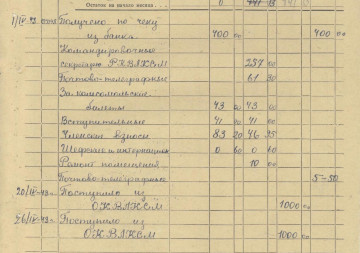 Остаток на начало месяца 0 741 13 741 13
1/IV-43 Получено по чеку
из банка 400 00 400 00
Командировочные
секретарю РКВЛКСМ 257 00
Почтово-телеграфные 61 30
За комсомольские
билеты 43 00 43 00
Вступительные 41 00 41 00
Членские взносы 83 20 46 35
Шефские и интернацион 0 60 0 60
Ремонт помещения 10 00
Почтово-телеграфные 5-50
20/IV-43г. Поступило из
ОКВЛКСМ 1000 00
26/IV-43г. Поступило из
ОКВЛКСМ 1000 00